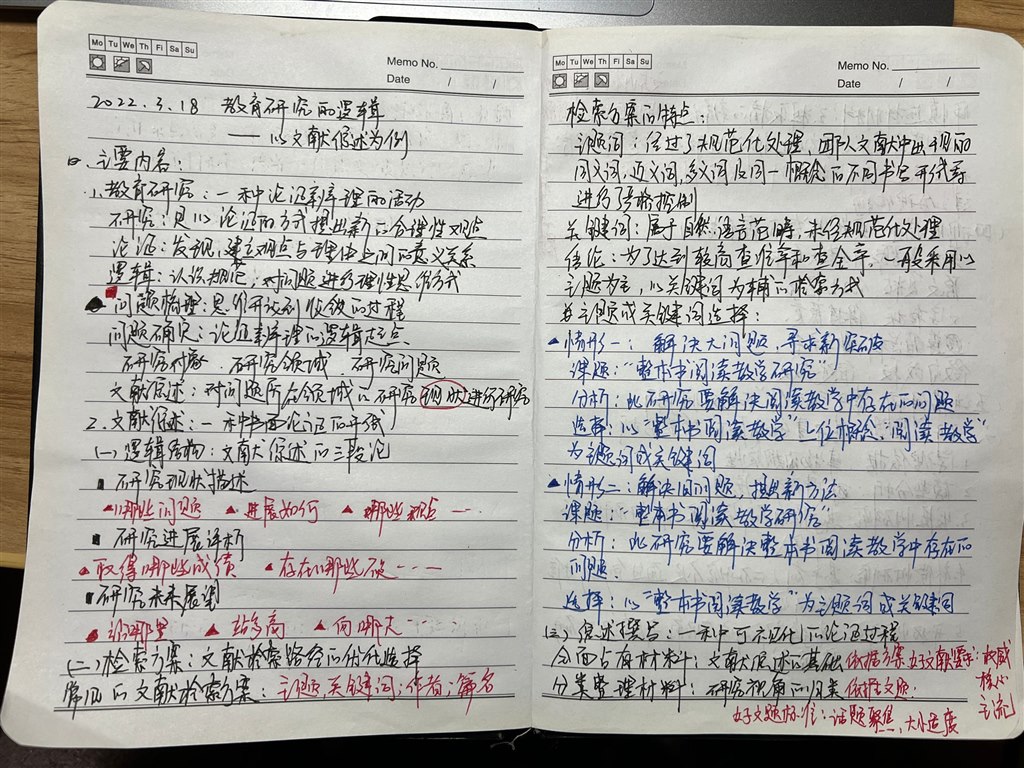 Mo Tu We Th Fi Sa Su
Memo No.
Date / /
2022.3.18 教育研究的逻辑
——以文献综述为例
一、主要内容：
1.教育研究：一种论证亲庠理的活动
研究：是以论证的方式提出新的合理性观点
论证：发现，建立观点与理由之间的意义关系
逻辑：认识规范，对问题进行理性思维方式
问题梳理：思维开放到收敛的过程
问题确定：论证的逻辑起点
研究对象，研究领域，研究问题
文献综述：对问题所在领域的研究现状进行研究
2.文献综述：一种书面论证的形式
(一)逻辑结构：文献综述的三段论
研究现状描述
▲哪些问题 ▲进展如何 ▲哪些观点……
研究进展评析
▲取得哪些成绩 ▲存在哪些不足……
研究未来展望
▲站哪里 ▲站多高 ▲向哪去……
(二)检索方案：文献检索路径的优化选择
常见的文献检索方案：主题；关键词；作者；篇名
Memo No.
Date / /
检索方案的特点：
主题词：经过了规范化处理，即从文献中出现的
同义词，近义词，多义词及同一概念的不同书写形式等
进行严格控制
关键词：属于自然语言范畴，未经规范化处理
结论：为了达到较高查准率和查全率，一般采用以
主题为主，以关键词为辅的检索方式
主题或关键词选择：
▲情形一：解决大问题，寻求新突破
课题：“整本书阅读教学研究”
分析：此研究要解决阅读教学中存在的问题
选择：以“整本书阅读教学”上位概念“阅读教学”
为主题词或关键词
▲情形二：解决旧问题，提出新方法
课题：“整本书阅读教学研究”
分析：此研究要解决整本书阅读教学中存在的
问题．
选择：以“整本书阅读教学”为主题词或关键词
(三)综述撰写：一种可视化的论证过程
全面占有材料：文献综述的基础 依据方案 好文献要求：权威
核心
主流
分类整理材料：研究视角的归类 依据文题．
好文题标准：话题聚焦、大小适度